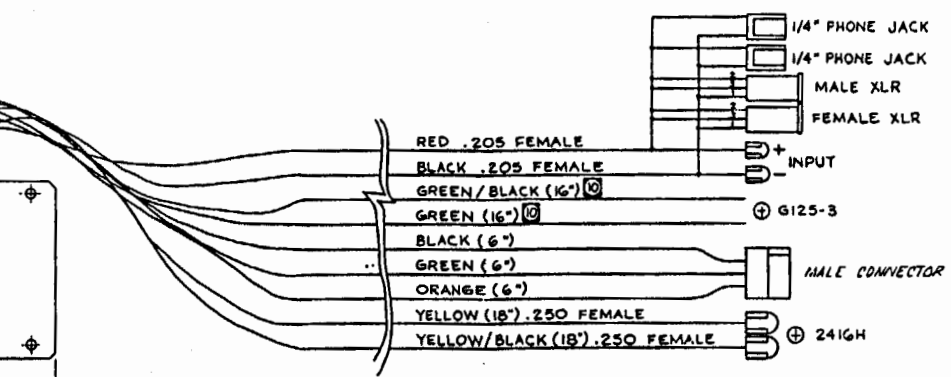 1/4" PHONE JACK
1/4" PHONE JACK
MALE XLR
FEMALE XLR
RED .205 FEMALE
+
BLACK .205 FEMALE
INPUT
-
GREEN/BLACK (16") 10
GREEN (16") 10
G125-3
BLACK (6")
GREEN (6")
MALE CONNECTOR
ORANGE (6")
YELLOW (18") .250 FEMALE
2416H
YELLOW/BLACK (18") .250 FEMALE